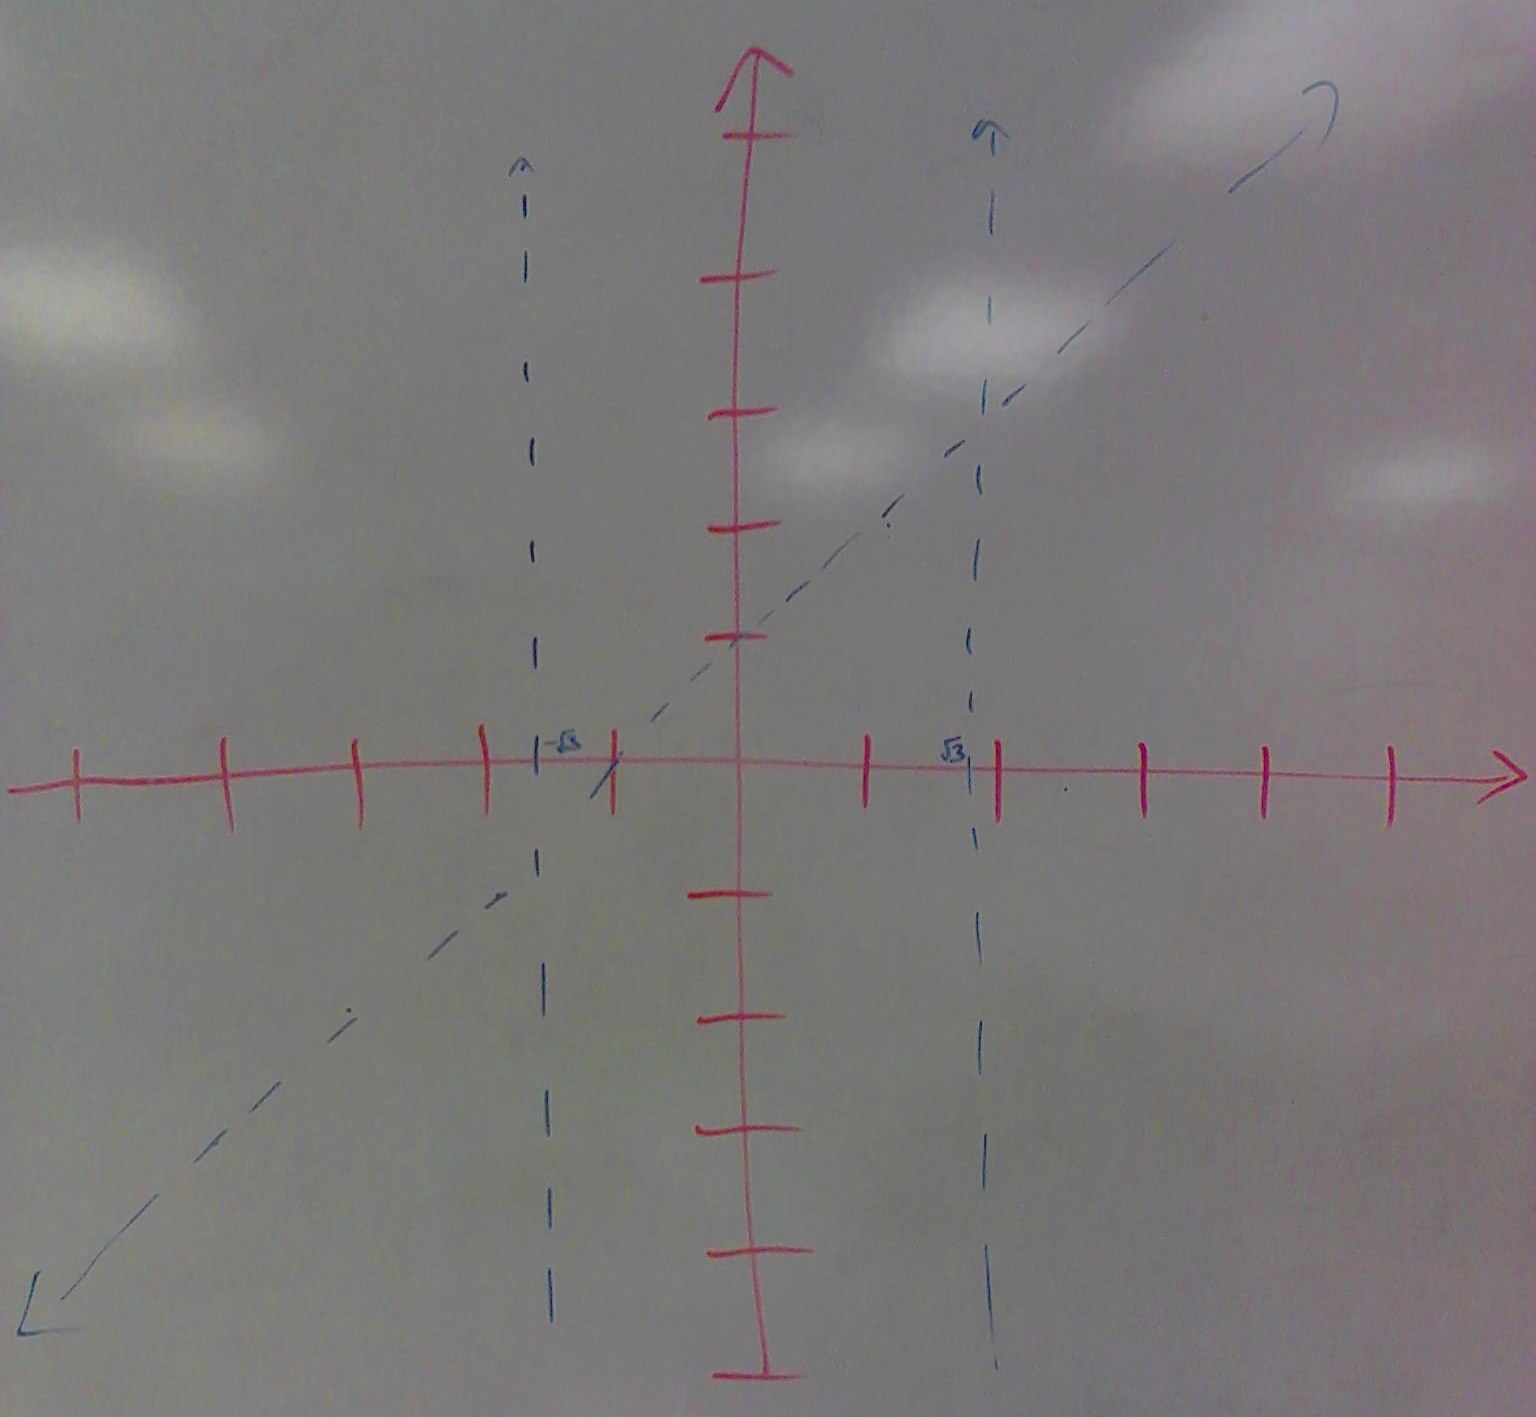 -√3
√3